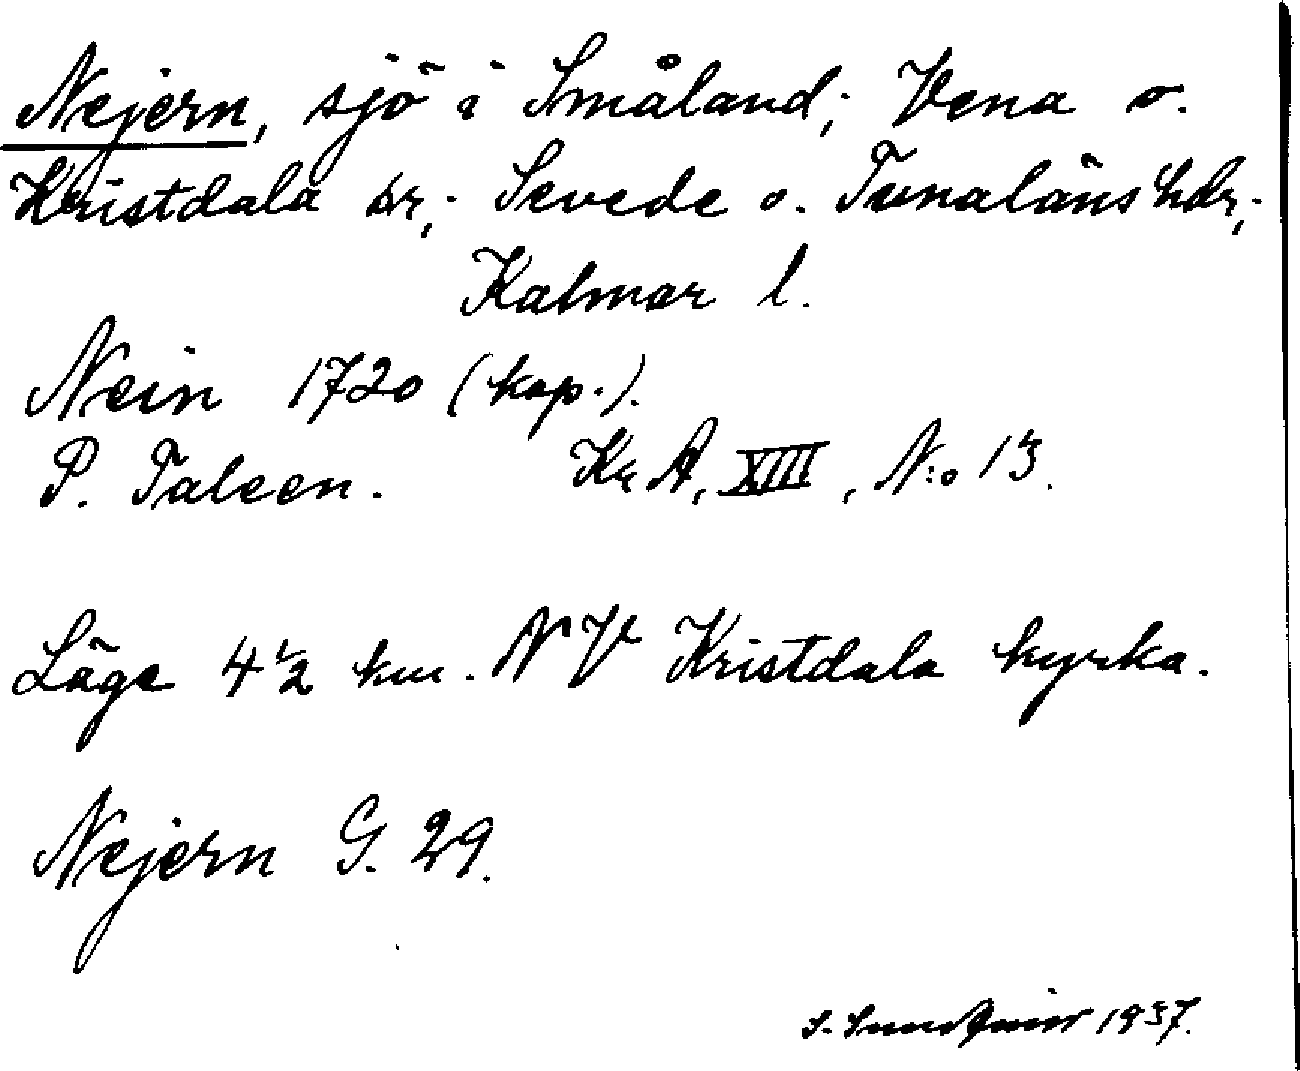 Nejern, sjö i Småland; Vena o.
Kristdala sr; Sevede o. Tunaläns hdr;
Kalmar l.
Nein 1720 (kop.).
P. Taleen. Kr A, XIII, N:o 13.
Läge 4 1/2 km. NV Kristdala kyrka.
Nejern G. 29.
S. 1937.